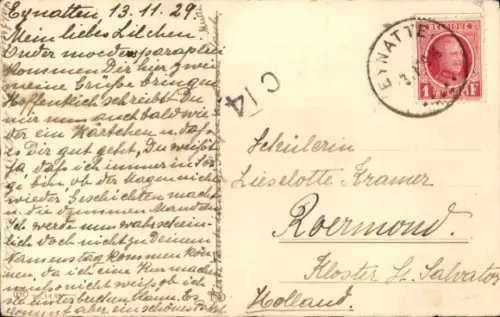 Eynatten, 13.11.29.
Mein liebes Lilchen.
Under moeders paraplui
kommen Dir hier zwei
meine Grüße bringen
Hoffentlich schreibst Du
mir nun auch bald wie-
der ein Kärtchen u. daß
es Dir gut geht, Du weißt
ja daß ich immer in Sor-
ge bin, ob der Magen nicht
wieder Geschichten macht
u. die dummen Mandeln
Ich werde nun wahrschein-
lich doch nicht zu Deinem
Namenstag kommen kön-
nen, da ich eine Kur machen
muß u. nicht weiß ob ich
sie unterbrechen kann. Es
kommt aber ein schönes
C 14
EYNATTEN
BELGIQUE
1 F
Schülerin
Lieselotte Kramer
Roermond.
Kloster St. Salvator
Holland.